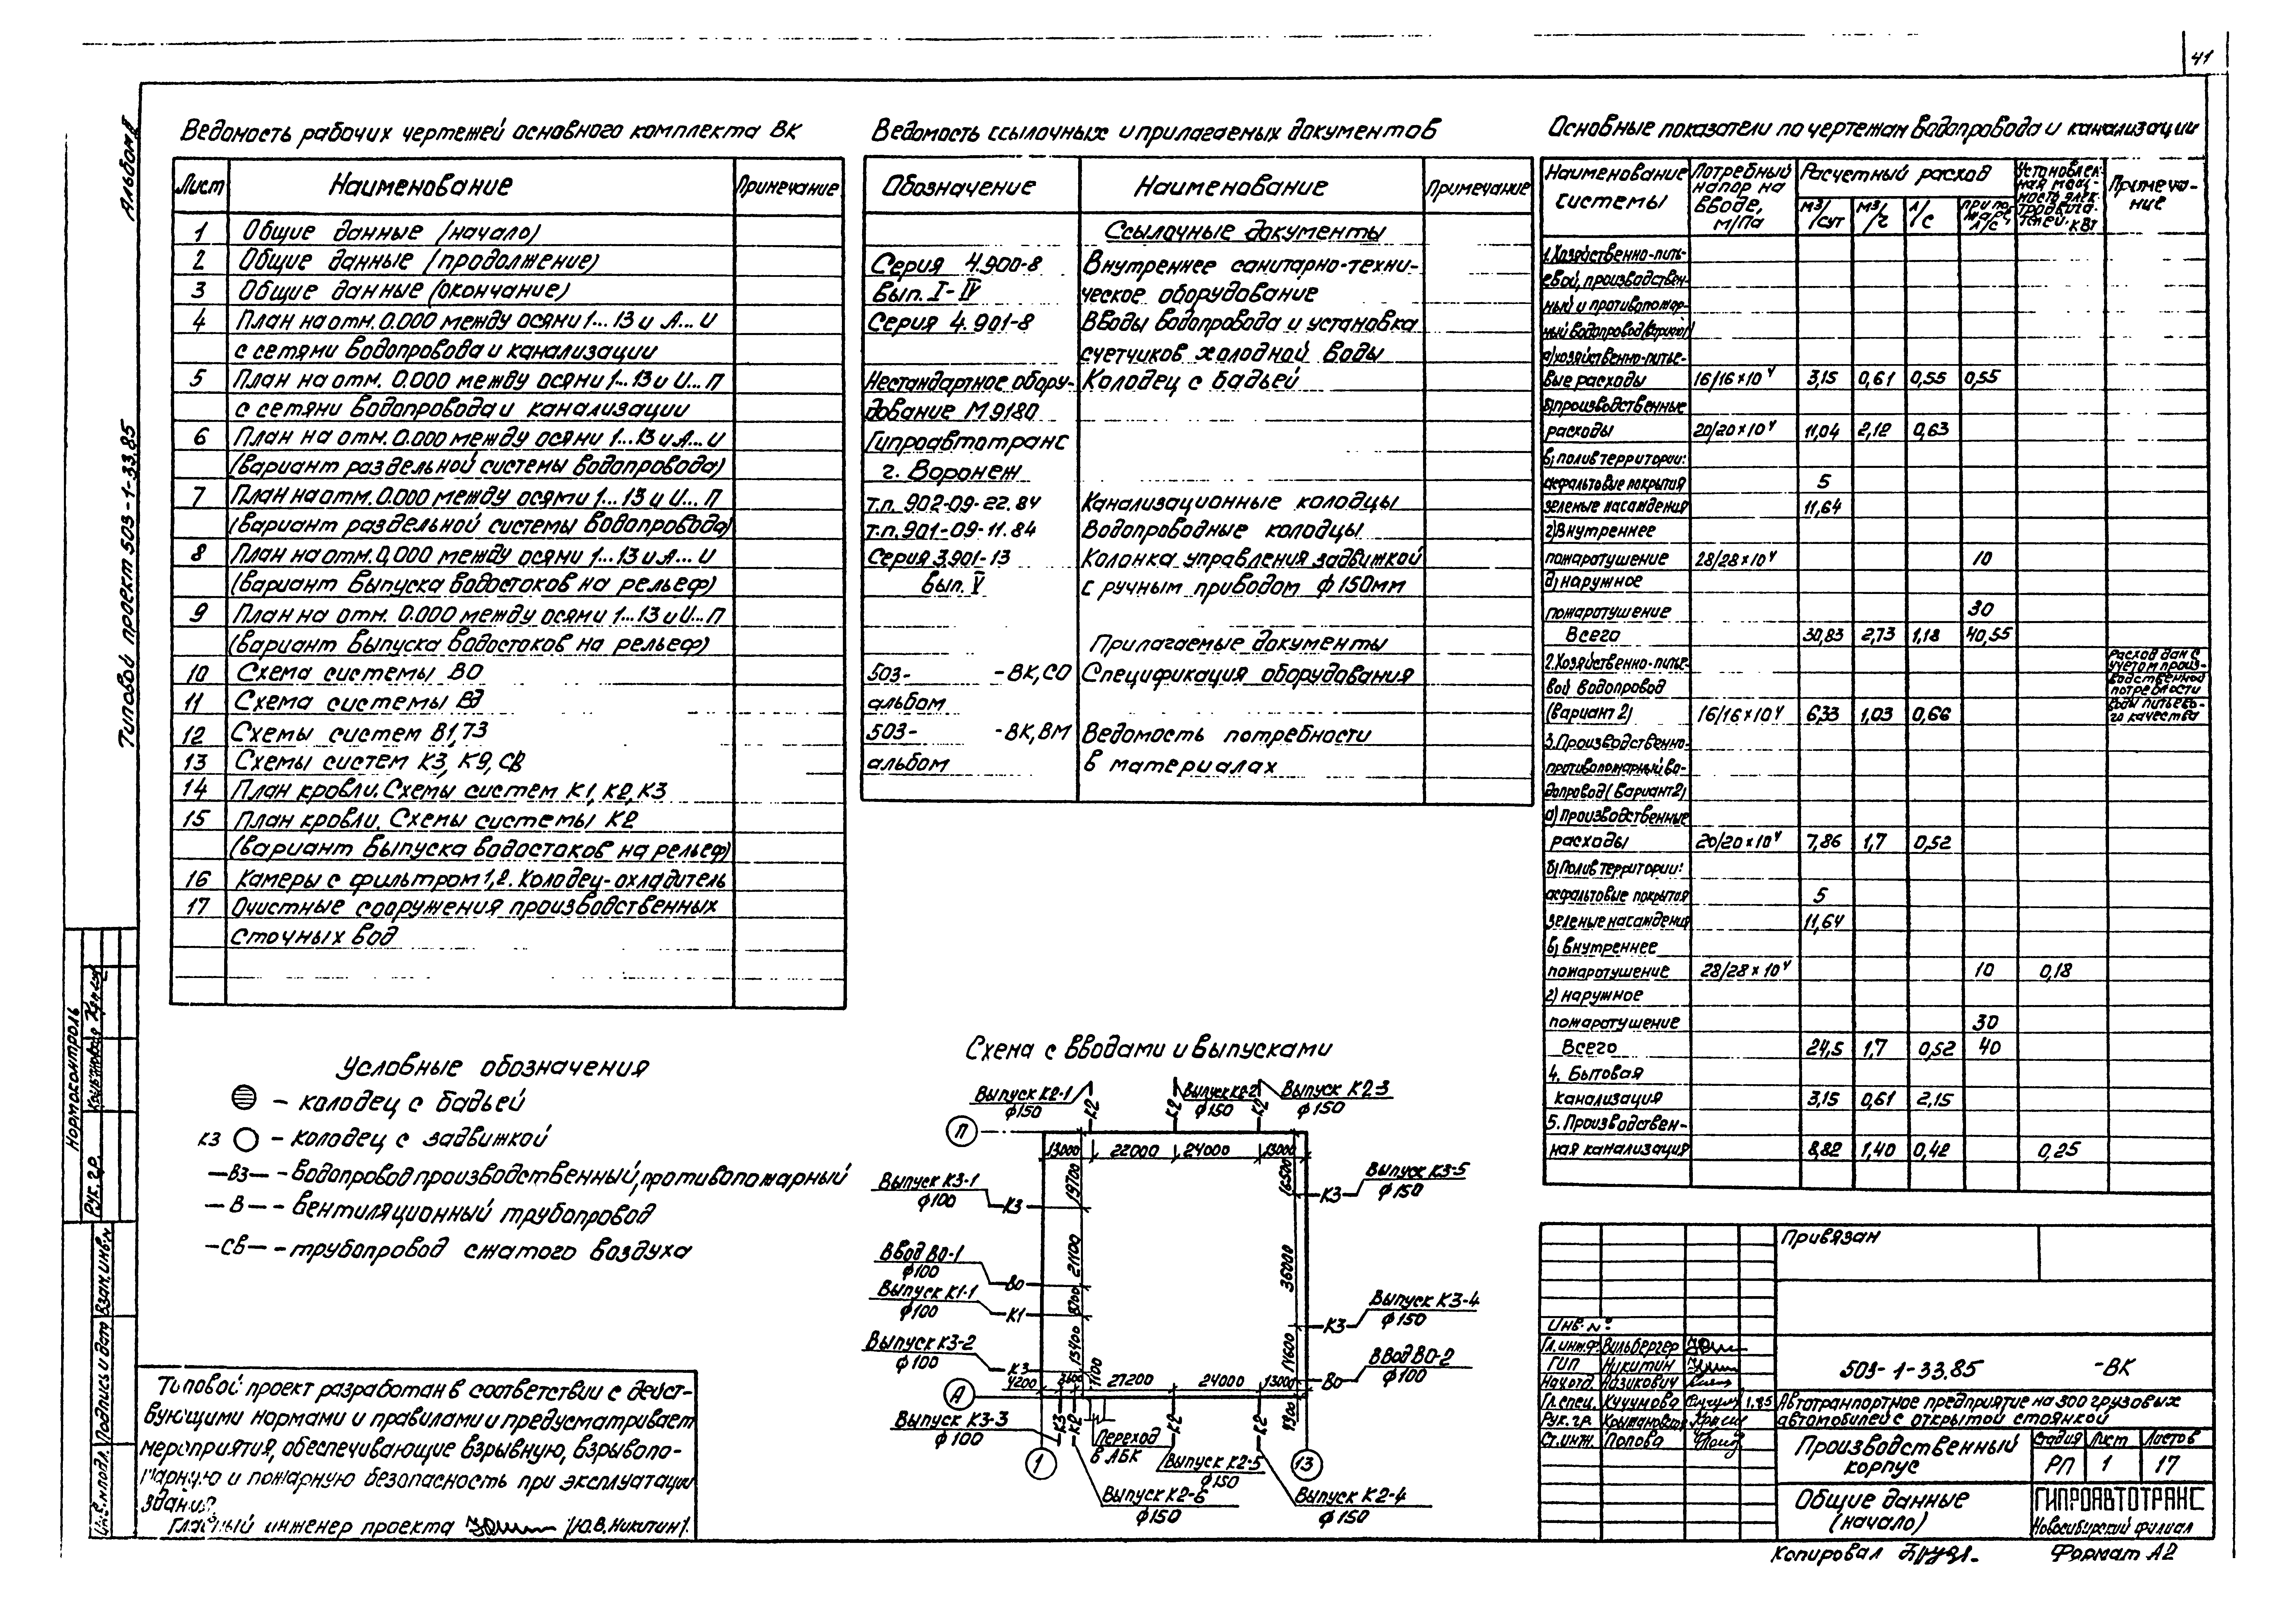 41
Альбом II
Типовой проект 503-1-33.85
Ведомость рабочих чертежей основного комплекта ВК
Лист Наименование Примечание
1 Общие данные (начало)
2 Общие данные (продолжение)
3 Общие данные (окончание)
4 План на отм. 0.000 между осями 1...13 и А...И
с сетями водопровода и канализации
5 План на отм. 0.000 между осями 1...13 и И...П
с сетями водопровода и канализации
6 План на отм. 0.000 между осями 1...13 и А...И
(вариант раздельной системы водопровода)
7 План на отм. 0.000 между осями 1...13 и И...П
(вариант раздельной системы водопровода)
8 План на отм. 0,000 между осями 1...13 и А...И
(вариант выпуска водостоков на рельеф)
9 План на отм. 0.000 между осями 1...13 и И...П
(вариант выпуска водостоков на рельеф)
10 Схема системы В0
11 Схема системы В3
12 Схемы систем В1, Т3
13 Схемы систем К3, К9, СВ
14 План кровли. Схемы систем К1, К2, К3
15 План кровли. Схемы системы К2
(вариант выпуска водостоков на рельеф)
16 Камеры с фильтром 1,2. Колодец-охладитель
17 Очистные сооружения производственных
сточных вод
Ведомость ссылочных и прилагаемых документов
Обозначение Наименование Примечание
Ссылочные документы
Серия 4.900-8 Внутреннее санитарно-техни-
Вып. I-IV ческое оборудование
Серия 4.901-8 Вводы водопровода и установка
счетчиков холодной воды
Нестандартное обору- Колодец с бадьей
дование М9180
Гипроавтотранс
г. Воронеж
т.п. 902-09-22.84 Канализационные колодцы
т.п. 901-09-11.84 Водопроводные колодцы
Серия 3.901-13 Колонка управления задвижкой
вып. V с ручным приводом ф 150мм
Прилагаемые документы
503- -ВК,СО Спецификация оборудования
альбом
503- -ВК,ВМ Ведомость потребности
альбом в материалах
Основные показатели по чертежам водопровода и канализации
Наименование системы Потребный напор на вводе, м/Па Расчетный расход Установлен-ная мощ-ность элек-тродвига-телей, кВт Примеча-ние
м3/сут м3/г л/с при по-жаре, л/с
1. Хозяйственно-пить-
евой, производствен-
ный и противопожар-
ный водопровод (вариант 1)
а) хозяйственно-питье-
вые расходы 16/16×10⁴ 3,15 0,61 0,55 0,55
б) производственные
расходы 20/20×10⁴ 11,04 2,12 0,63
в) полив территории:
асфальтовые покрытия 5
зеленые насаждения 11,64
г) Внутреннее
пожаротушение 28/28×10⁴ 10
д) наружное
пожаротушение 30
Всего 30,83 2,73 1,18 40,55
2. Хозяйственно-питье-
вой водопровод
(вариант 2) 16/16×10⁴ 6,33 1,03 0,66
Расход дан с
учетом произ-
водственной
потребности
воды питьево-
го качества
3. Производственно-
противопожарный во-
допровод (вариант 2)
а) производственные
расходы 20/20×10⁴ 7,86 1,7 0,52
б) Полив территории:
асфальтовые покрытия 5
зеленые насаждения 11,64
в) внутреннее
пожаротушение 28/28×10⁴ 10 0,18
г) наружное
пожаротушение 30
Всего 24,5 1,7 0,52 40
4. Бытовая
канализация 3,15 0,61 2,15
5. Производствен-
ная канализация 8,82 1,40 0,42 0,25
Условные обозначения
- колодец с бадьей
К3 - колодец с задвижкой
—В3— - водопровод производственный, противопожарный
—В— - вентиляционный трубопровод
—СВ— - трубопровод сжатого воздуха
Схема с вводами и выпусками
Выпуск К2-1 ф150
Выпуск К2-2 ф150
Выпуск К2-3 ф150
К2 К2 К2
П
13000 22000 24000 13000
Выпуск К3-1 ф100 К3
19700 16500
К3 Выпуск К3-5 ф150
Ввод В0-1 ф100 В0
21100 36000
Выпуск К1-1 ф100 К1
8700
К3 Выпуск К3-4 ф150
Выпуск К3-2 ф100 К3
13400 14600
В0 Ввод В0-2 ф100
4200 1100
А
27200 24000 13000
Выпуск К3-3 ф100
К3 К2 К2 К2
Переход
в АБК
1 13
Выпуск К2-5 ф150
Выпуск К2-6 ф150
Выпуск К2-4 ф150
Типовой проект разработан в соответствии с дейст-
вующими нормами и правилами и предусматривает
мероприятия, обеспечивающие взрывную, взрывопо-
жарную и пожарную безопасность при эксплуатации
здания.
Главный инженер проекта /Ю.В. Никитин/.
Нормоконтроль
Рук. гр.
Инв. № подл. Подпись и дата Взам. инв. №
Привязан
Инв. №
Гл. инж. ф. Вильбергер
ГИП Никитин
Нач. отд. Назикович
Гл. спец. Кучумова 1.85
Рук. гр. Крымановская
Ст. инж. Попова
503-1-33.85 -ВК
Автотранспортное предприятие на 300 грузовых
автомобилей с открытой стоянкой
Производственный
корпус
Стадия Лист Листов
РП 1 17
Общие данные
(начало)
ГИПРОАВТОТРАНС
Новосибирский филиал
Копировал Формат А2